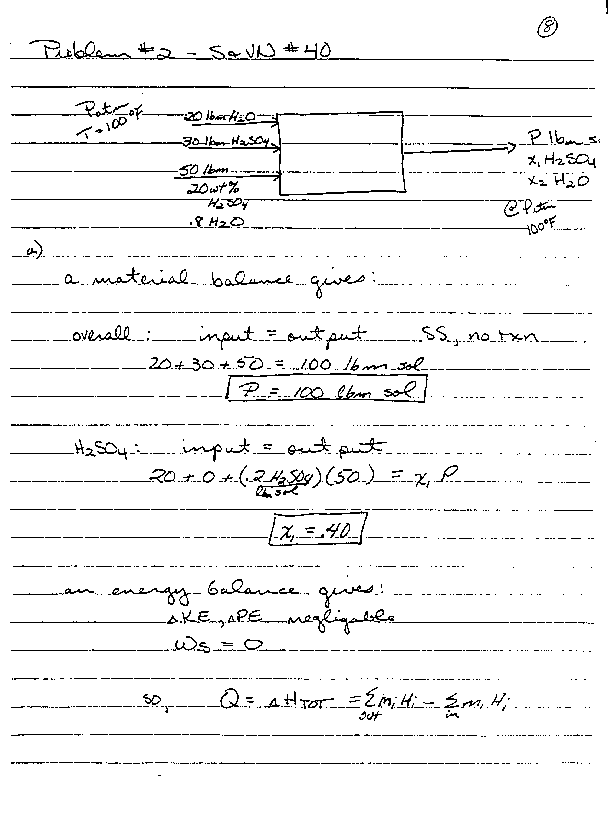 8
Problem #2 - S&VN #40
Patm
T=100°F
20 lbm H2O
30 lbm H2SO4
50 lbm
20 wt%
H2SO4
.8 H2O
P lbm s
x1 H2SO4
x2 H2O
@ Patm
100°F
a)
a material balance gives:
overall: input = output SS, no rxn
20+30+50 = 100 lbm sol
P = 100 lbm sol
H2SO4: input = output
20 + 0 + (.2 H2SO4/lbm sol)(50) = x1 P
x1 = .40
an energy balance gives:
ΔKE, ΔPE negligable
Ws = 0
so, Q = ΔHTOT = Σout mi Hi - Σin mi Hi